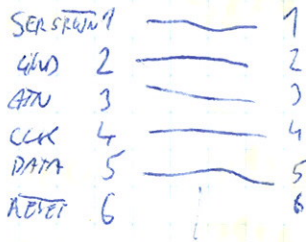 SERSRWIN 1 1
GND 2 2
ATN 3 3
CLK 4 4
DATA 5 5
RESET 6 6